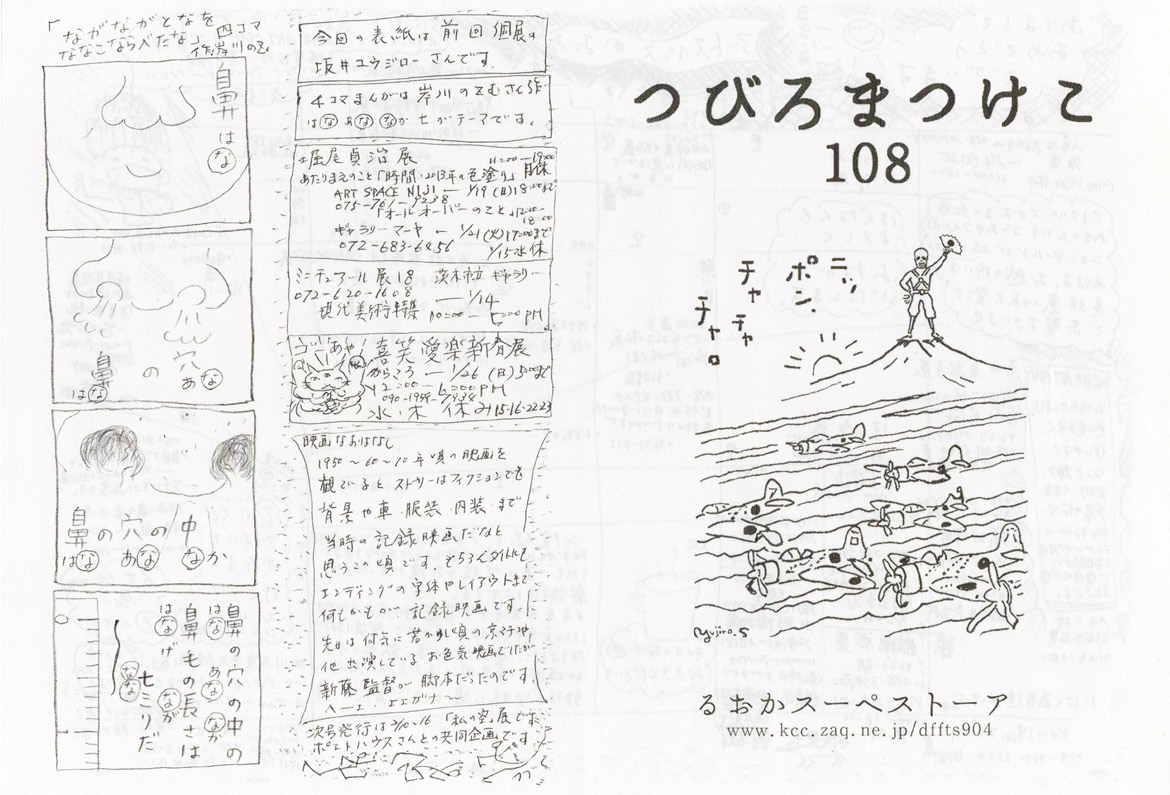 「ながながとなを
ななこならべたな」四コマ
作 岸川のる
鼻は
な
鼻の穴
はなのあな
鼻の穴の中
はなのあなのなか
鼻の穴の中の
はな あな なか
鼻毛の長さは
はなげ なが
七ミリだ
なな
今回の表紙は前回個展の
坂井ユウジローさんです。
4コマまんがは岸川のるむさく作
はな あな なか 七がテーマです。
堀尾貞治展 11:00—19:00 月休
あたりまえのこと「時間・2013年の色塗り」
ART SPACE NIJI — 1/19(日)18:00まで
075-761-9238
「オールオーバーのこと」12:00-18:00
ギャラリーマーヤ — 1/21(火)17:00まで
072-683-6456 1/15水休
ミニチュアール展18 茨木市立ギャラリー
072-620-1608 — 1/14
現代美術 10:00—5:00PM
喜笑愛楽新春展
からころ — 1/26(日)5:00まで
12:00—6:00PM
水・木休み 15・16・22・23
映画なおはなし
1950〜60〜70年頃の映画を
観ているとストーリーはフィクションでも
背景や車・服装・内装まで
当時の記録映画だなも
思うこの頃です。そろそろタイトルも
エンディングの字体やレイアウトまで
何もかもが記録映画です。
他出演しているお色気映画でしたが
新藤監督が脚本だったのです。
次号発行は2/10〜16「私の空」展でお
ポエトハウスさんとの共同企画です
つびろまつけこ
108
ポニョン
チャチャチャ。
Yujiro.S
るおかスーペストーア
www.kcc.zaq.ne.jp/dffts904